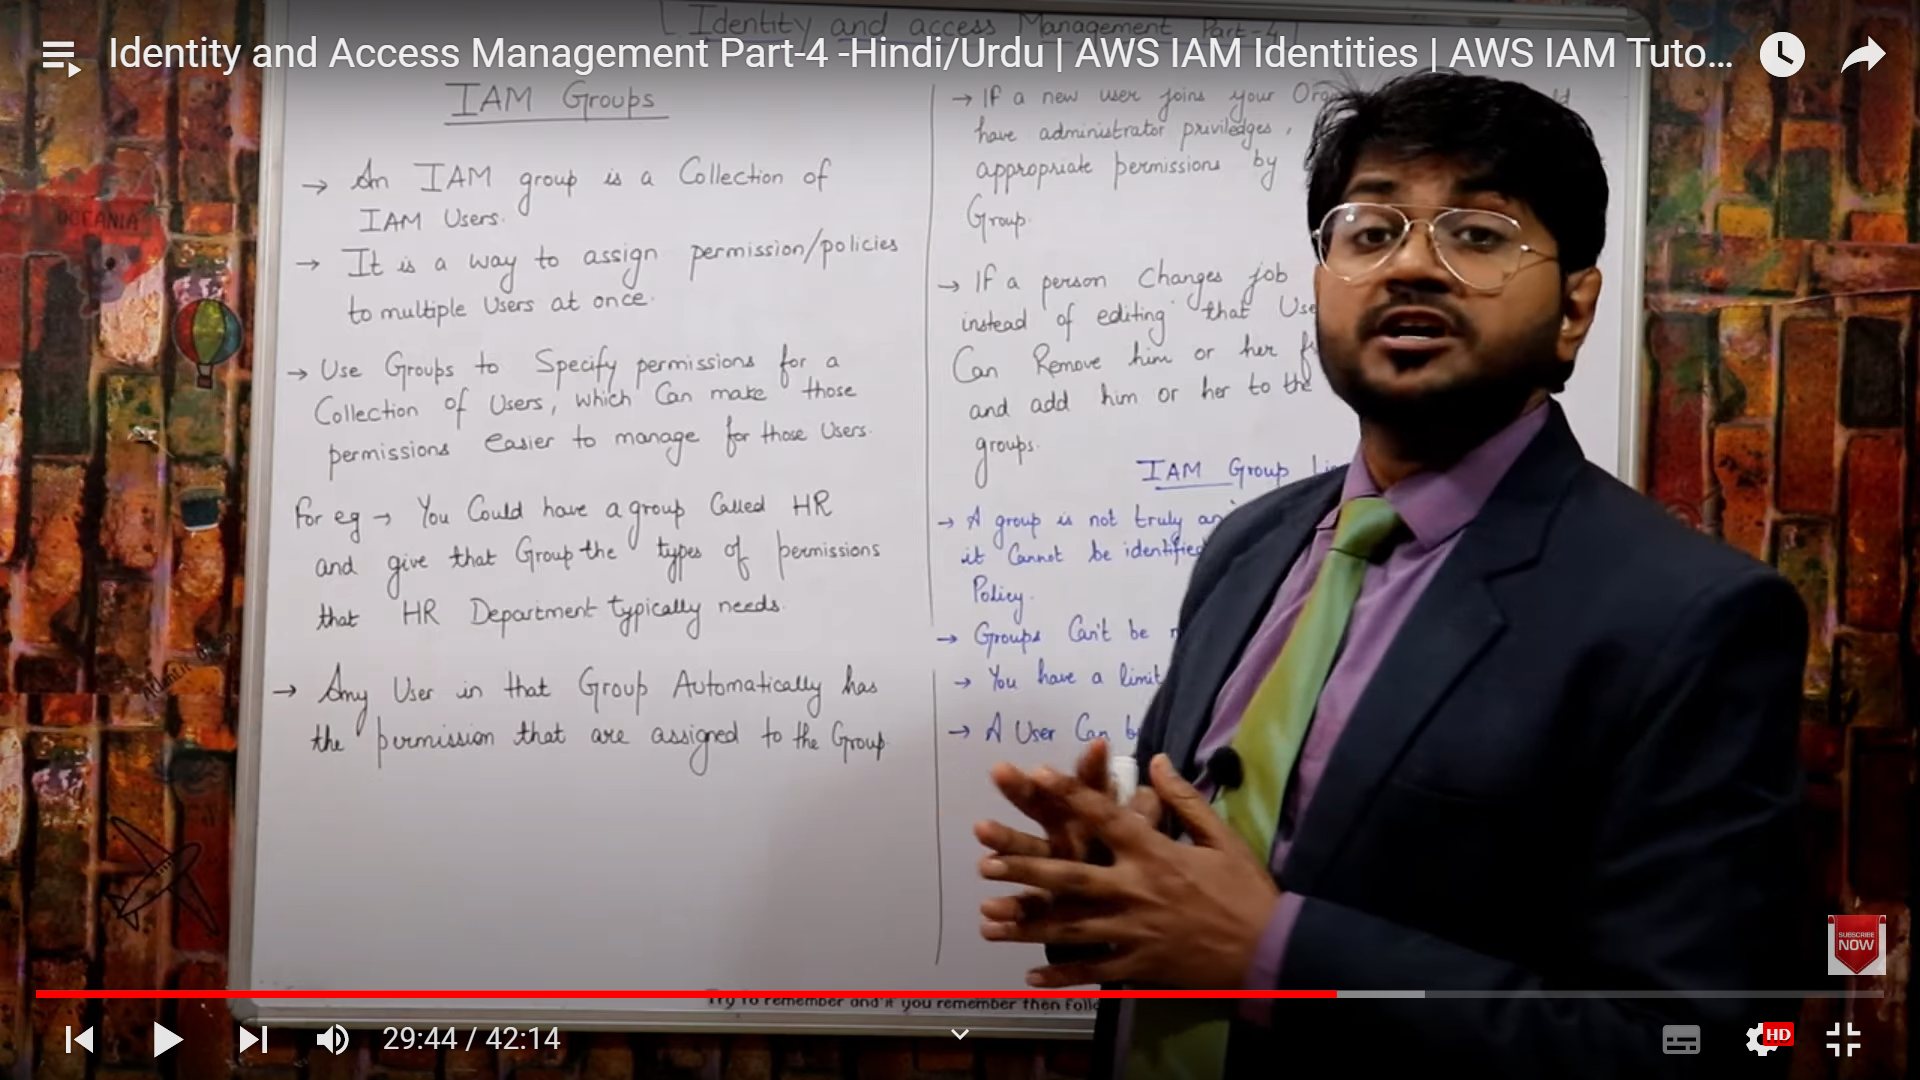 [ Identity and access Management Part-4 ]
Identity and Access Management Part-4 -Hindi/Urdu | AWS IAM Identities | AWS IAM Tuto...
IAM Groups
→ An IAM group is a Collection of
IAM Users.
→ It is a way to assign permission/policies
to multiple Users at once.
→ Use Groups to Specify permissions for a
Collection of Users, which Can make those
permissions easier to manage for those Users.
For eg → You Could have a group Called HR
and give that Group the types of permissions
that HR Department typically needs.
→ Any User in that Group Automatically has
the permission that are assigned to the Group
→ If a new user joins your
have administrator priviledges,
appropriate permissions by
Group.
→ If a person Changes job
instead of editing that
Can Remove him or her
and add him or her to the
groups.
IAM Group
→ A group is not truly an
it Cannot be identified
Policy.
→ Groups Can't be
→ You have a limit
→ A User Can
OCEANIA
Try to remember and if you remember then
SUBSCRIBE
NOW
29:44 / 42:14
HD